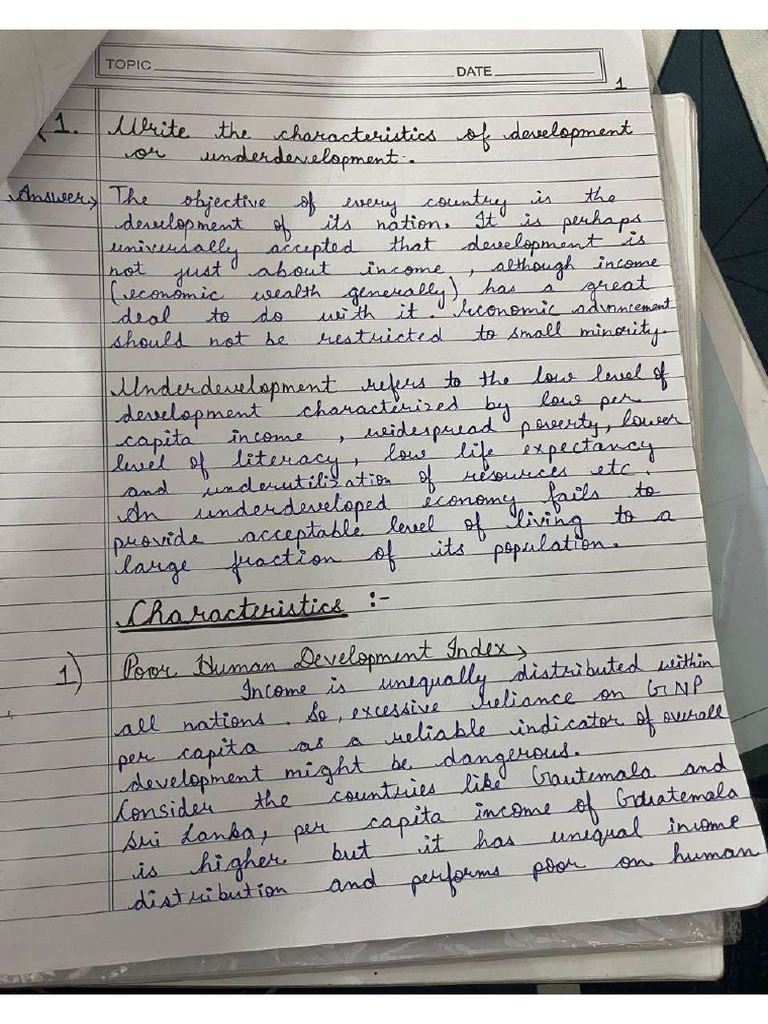 TOPIC
DATE
1
1. Write the characteristics of development
or underdevelopment.
Answer→ The objective of every country is the
development of its nation. It is perhaps
universally accepted that development is
not just about income, although income
(economic wealth generally) has a great
deal to do with it. Economic advancement
should not be restricted to small minority.
Underdevelopment refers to the low level of
development characterized by low per
capita income, widespread poverty, lower
level of literacy, low life expectancy
and underutilization of resources etc.
An underdeveloped economy fails to
provide acceptable level of living to a
large fraction of its population.
Characteristics :-
1) Poor Human Development Index→
Income is unequally distributed within
all nations. So, excessive reliance on GNP
per capita as a reliable indicator of overall
development might be dangerous.
Consider the countries like Gautemala and
Sri Lanka, per capita income of Guatemala
is higher but it has unequal income
distribution and performs poor on human